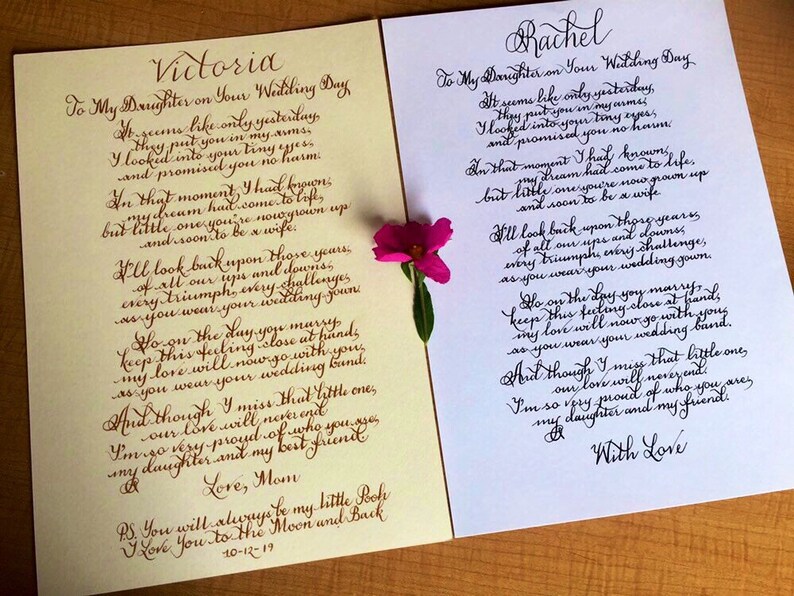 Victoria
To My Daughter on Your Wedding Day
It seems like only yesterday,
they put you in my arms,
I looked into your tiny eyes,
and promised you no harm.
In that moment I had known,
my dream had come to life,
but little one you're now grown up
and soon to be a wife.
I'll look back upon those years,
of all our ups and downs,
every triumph, every challenge,
as you wear your wedding gown.
So on the day you marry
keep this feeling close at hand,
my love will now go with you,
as you wear your wedding band.
And though I miss that little one,
our love will never end
I'm so very proud of who you are,
my daughter and my best friend
Love, Mom
P.S. You will always be my little Pooh
I Love You to the Moon and Back
10-12-19
Rachel
To My Daughter on Your Wedding Day
It seems like only yesterday,
they put you in my arms,
I looked into your tiny eyes,
and promised you no harm.
In that moment I had known,
my dream had come to life,
but little one you're now grown up
and soon to be a wife
I'll look back upon those years,
of all our ups and downs,
every triumph, every challenge,
as you wear your wedding gown.
So on the day you marry
keep this feeling close at hand,
my love will now go with you,
as you wear your wedding band.
And though I miss that little one,
our love will never end.
I'm so very proud of who you are,
my daughter and my friend.
With Love